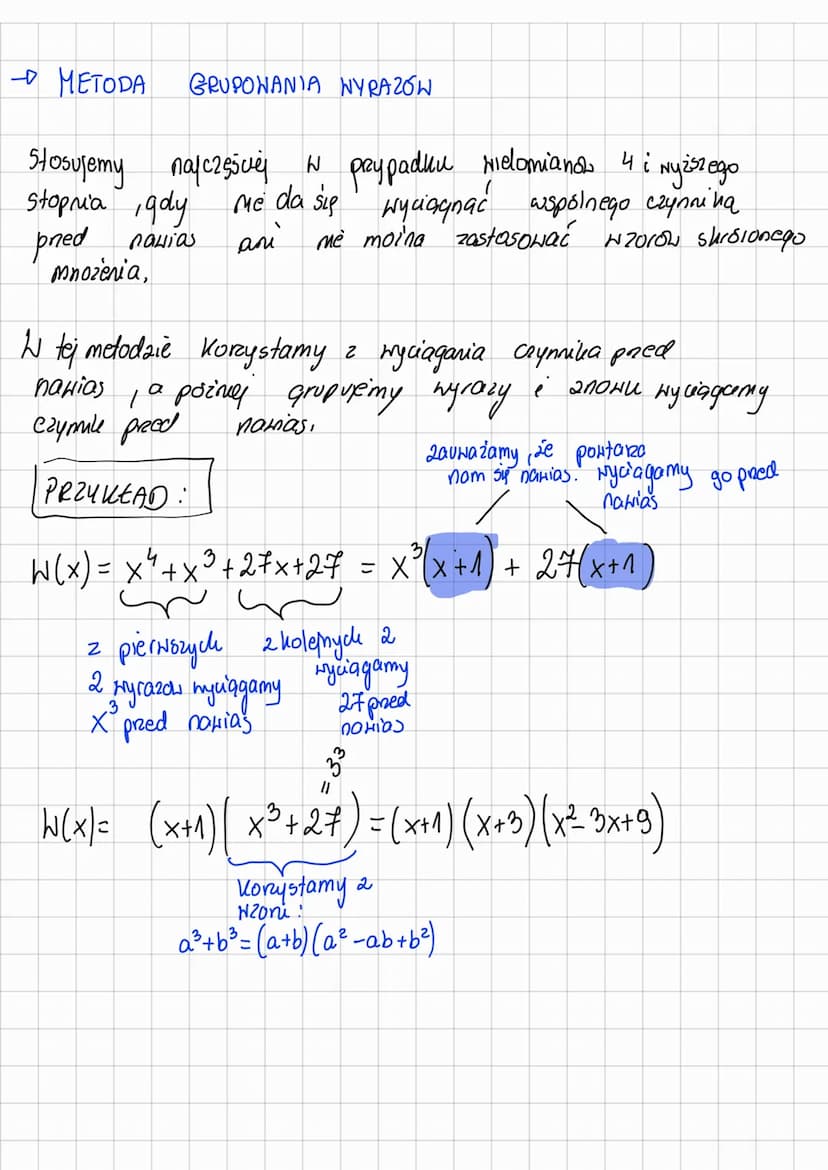 → METODA GRUPOWANIA WYRAZÓW
Stosujemy najczęściej w przypadku wielomianów 4 i wyższego
stopnia , gdy nie da się wyciągnąć wspólnego czynnika
przed nawias ani nie można zastosować wzorów skróconego
mnożenia.
W tej metodzie korzystamy z wyciągania czynnika przed
nawias , a później grupujemy wyrazy i znowu wyciągamy
czynnik przed nawias.
zauważamy , że powtarza
nam się nawias. Wyciągamy go przed
nawias
PRZYKŁAD :
W(x) = x⁴ + x³ + 27x + 27 = x³(x+1) + 27(x+1)
z pierwszych
2 wyrazów wyciągamy
x³ przed nawias
z kolejnych 2
wyciągamy
27 przed
nawias
3³
=
W(x) = (x+1)(x³+27) = (x+1)(x+3)(x²-3x+9)
Korzystamy z
wzoru :
a³+b³ = (a+b)(a²-ab+b²)